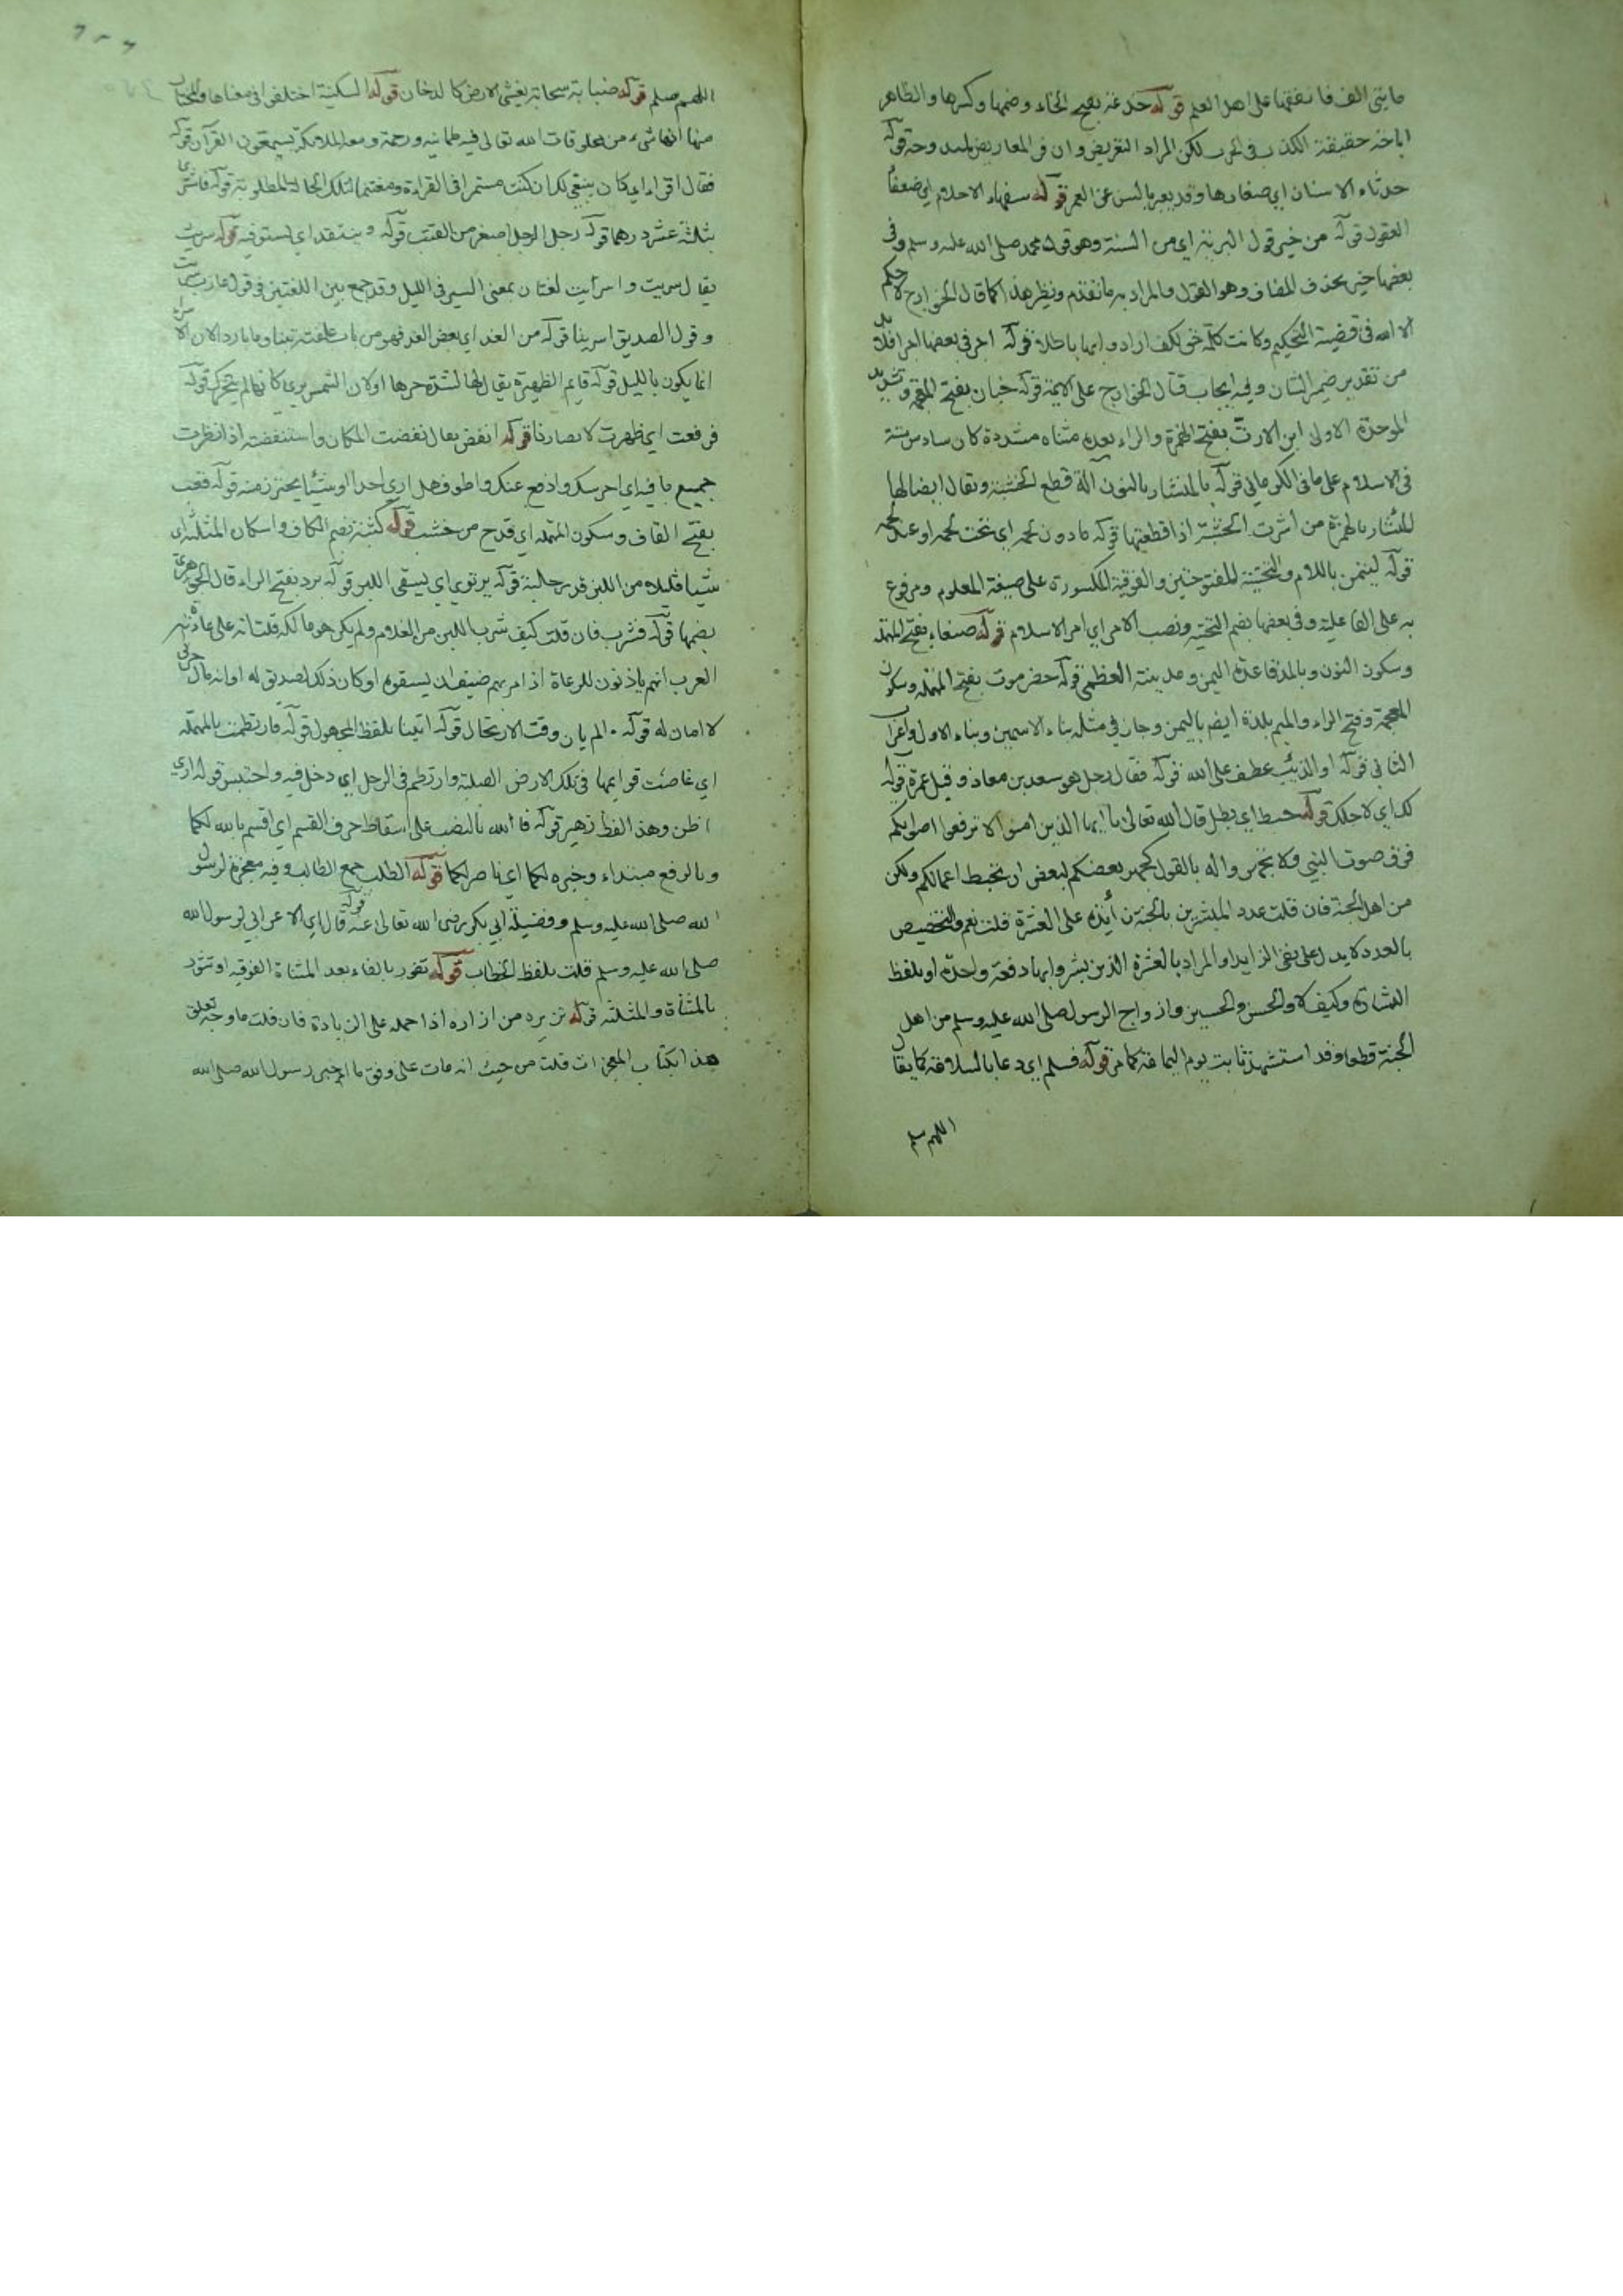 مايتى الف فانفقها على اهل العلم قوله خدعة بفتح الخاء وضمها وكسرها والظاهر
اباحة حقيقة الكذب فى الحرب لكن المراد التعريض وان فى المعاريض لمندوحة قوله
حدثاء الاسنان اي صغارها وقد يعبر بالسن عن العمر قوله سفهاء الاحلام اي ضعفا
العقول قوله من خير قول البرية اي من السنة وهو قول محمد صلى الله عليه وسلم وفى
بعضها خير بحذف المضاف وهو القول والمراد به ما تقدم ونظير هذا كما قال الخوارج لا حكم
الا لله فى قضية التحكيم وكانت كلمة حق لكن ارادوا بها باطلا قوله اجر فى بعضها اجرا فلابد
من تقدير ضمير الشان وفيه ايجاب قتال الخوارج على الايمة قوله خبان بفتح المعجمة وتشديد
الموحدة الاولى ابن الارتّ بفتح الهمزة والراء بعده مثناه مشددة كان سادس ستة
فى الاسلام على ما فى الكرمانى قوله بالمنشار بالنون آلة قطع الخشبة ويقال ايضا لها
المئشار بالهمزة من أشرت الخشبة اذا قطعتها قوله ما دون لحمه اي تحت لحمه او عند لحمه
قوله ليتمن باللام والتحتية المفتوحتين والفوقية المكسورة على صيغة المعلوم ومرفوع
به على الفاعلية وفى بعضها بضم التحتية ونصب الامر اي امر الاسلام قوله صنعاء بفتح المهملة
وسكون النون وبالمد قاعدة اليمن ومدينته العظمى قوله حضرموت بفتح المهملة وسكون
المعجمة وفتح الراء والميم بلدة ايضا باليمن وجاز فى مثله بناء الاسمين وبناء الاول واعراب
الثانى قوله او الذئب عطف على الله قوله فقال رجل هو سعد بن معاذ وقيل غيره قوله
لك اي لاجلك قوله حبط اي بطل قال الله تعالى يا ايها الذين امنوا لا ترفعوا اصواتكم
فوق صوت النبي ولا تجهروا له بالقول كجهر بعضكم لبعض ان تحبط اعمالكم ولكن
من اهل الجنة فان قلت عدد المبشرين بالجنة زائد على العشرة قلت نعم والتخصيص
بالعدد لا يدل على نفى الزايد او المراد بالعشرة الذين بشروا بها دفعة واحدة او بلفظ
البشارة وكيف لا والحسن والحسين وازواج الرسول صلى الله عليه وسلم من اهل
الجنة قطعا وقد استشهد ثابت يوم اليمامة كما مر قوله فسلم اي دعا بالسلامة كما يقال
اللهم سلم
اللهم سلم قوله ضبابة سحابة يغشى الارض كالدخان قوله السكينة اختلفوا فى معناها والمختار
منها انها شىء من مخلوقات الله تعالى فيه طمانينة ورحمة ومعه الملائكة يستمعون القرآن قوله
فقال اقراء اي كان ينبغى لك ان كنت مستمرا فى القراءة ومغتنما لتلك الحالة المطلوبة قوله فاشترى
بثلثة عشر درهما قوله رحل الرحل اصغر من القتب قوله وينتقد اي يستوفيه قوله سريت
يقال سريت واسرأيت لغتان بمعنى السير فى الليل وقد جمع بين اللغتين فى قول عازب سريت
وقول الصديق اسرينا قوله من الغد اي بعض الغد فهو من باب علفته تبنا وما باردا لان الاسراء
انما يكون بالليل قوله قايم الظهيرة يقال لها لشدة حرها او لان الشمس يرى كانها لم يتحرك قوله
فرفعت اي ظهرت لابصارنا قوله انفض يقال نفضت المكان واستنفضته اذا نظرت
جميع ما فيه اي احرسك وادفع عنك واطوف هل ارى احدا او شيئا يحترز منه قوله قعب
بفتح القاف وسكون المهملة اي قدح من خشب قوله كثبة بضم الكاف واسكان المثلثة اي
شيئا قليلا من اللبن قدر حلبة قوله يرتوى اي يستقى اللبن قوله برد بفتح الراء قال الجوهري
بضمها قوله فشرب فان قلت كيف شرب اللبن من الغلام ولم يكن هو مالكه قلت انه على عادة
العرب انهم ياذنون للرعاة اذا مر بهم ضيف ان يسقوه او كان ذلك لصديق له او انه مال حربى
لا امان له قوله الم يان وقت الارتحال قوله اتينا بلفظ المجهول قوله فارتطمت بالمهملة
اي غاصت قوايمها فى تلك الارض الصلبة وارتطم فى الوحل اي دخل فيه واحتبس قوله ارى
اظن وهذا لفظ زهير قوله فالله بالنصب على اسقاط حرف القسم اي اقسم بالله لكما
وبالرفع مبتداء وخبره لكما اي ناصر لكما قوله الطلب جمع الطالب وفيه معجزة لرسول
الله صلى الله عليه وسلم وفضيلة ابى بكر رضى الله تعالى عنه قوله قال اي الاعرابي لرسول الله
صلى الله عليه وسلم قلت بلفظ الخطاب قوله تفور بالفاء بعد المثناة الفوقية او تثور
بالمثناة والمثلثة قوله تزيره من ازاره اذا حمله على الزيادة فان قلت ما وجه تعلق
هذا بكتاب المعجزات قلت من حيث انه مات على وفق ما اخبر رسول الله صلى الله